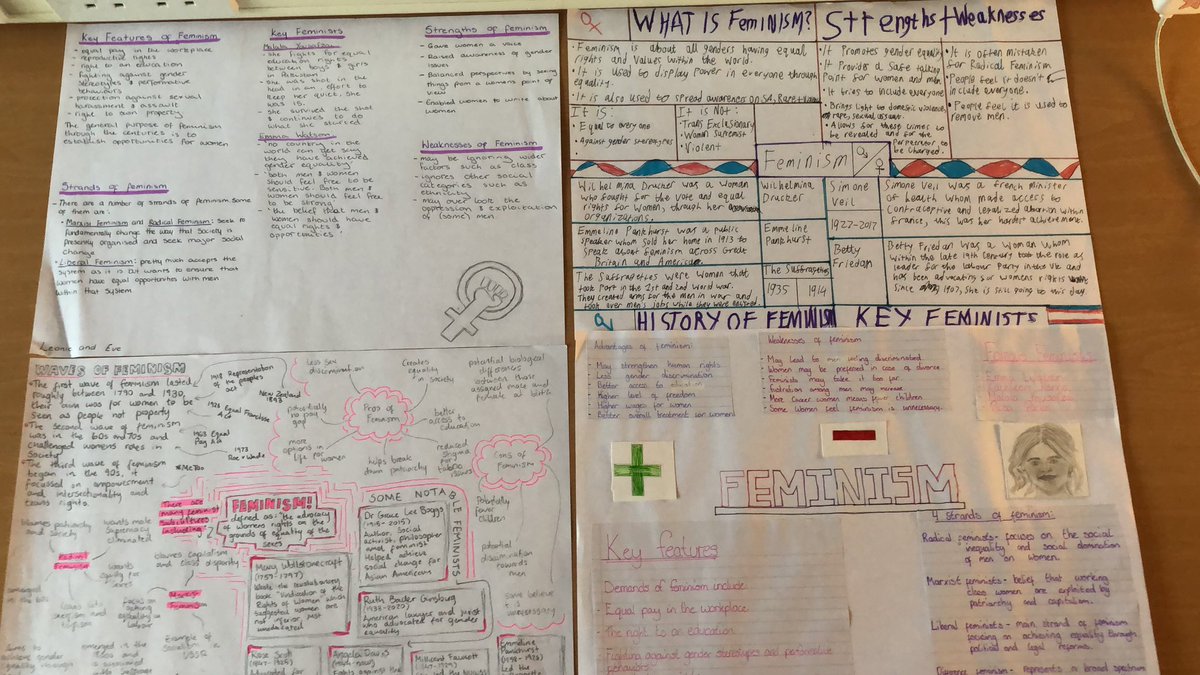 Key Features of Feminism
- equal pay in the workplace
- reproductive rights
- right to an education
- fighting against gender
stereotypes & performative
behaviours
- protection against sexual
harassment & assault
- right to own property
The general purpose of feminism
through the centuries is to
establish opportunities for women
Strands of feminism
- There are a number of strands of feminism some
of them are:
· Marxist Feminism and Radical Feminism: seek to
fundamentally change the way that society is
presently organised and seek major social
change
· Liberal Feminism: pretty much accepts the
System as it is but wants to ensure that
women have equal opportunities with men
within that system
Key Feminists
Malala Yousafzai
- She fights for equal
education rights
between boys & girls
in Pakistan
- She was shot in the
head in an effort to
keep her quiet, she
was 15.
- She survived the shot
& continues to do
what she started
Emma Watson
- no country in the
world can yet say
they have achieved
gender equality
- both men & women
should feel free to be
sensitive. Both men &
women should feel free
to be strong
- the belief that men &
women should have
equal rights &
opportunities
Strengths of Feminism
- Gave women a voice
- Raised awareness of gender
issues
- Balanced perspectives by seeing
things from a womens point of
view
- Enabled women to write about
women
Weaknesses of Feminism
- may be ignoring wider
factors such as class
- ignores other social
categories such as
ethnicity
- may over look the
oppression & exploitation
of (some) men
Leonie and Eve
WHAT IS FEMINISM?
· Feminism is about all genders having equal
rights and values within the world.
· It is used to display power in everyone through
equality.
· It is also used to spread awareness on SA, Rape
It is:
· Equal to everyone
· Against gender stereotypes
It is Not:
· Trans Exclusionary
· Woman supremist
· Violent
Strengths + Weaknesses
· It promotes gender equality
· It Provides a Safe talking
Point for women and men.
· It tries to include everyone
· Brings light to domestic violence,
rape, sexual assault.
· Allows for these crimes to
be revealed and for the
Perpetrator to
be Charged.
· It is often mistaken
for Radical Feminism
· People feel it doesn't
include everyone.
· People feel it is used to
remove men.
Feminism
Wilhelmina Drucker was a woman
who fought for the vote and equal
rights for women, through her
organizations.
Emmeline Pankhurst was a public
speaker whom sold her home in 1913 to
speak about feminism across Great
Britain and American
The Suffragettes were women that
took part in the 1st and 2nd world war.
They created arms for the men in war and
took over men's jobs while they were
Wilhelmina
Drucker
Emmeline
Pankhurst
The Suffragettes
1935 1914
Simone
Veil
1927-2017
Betty
Friedan
Simone Veil was a French minister
of health whom made access to
Contraceptive and legalized abortion within
france, this was her harder achievement.
Betty Friedan was a woman whom
within the late 19th century took the role as
leader for the labour Party in the UK and
has been advocating for womens rights
since 1907, she is still going to this day.
HISTORY OF FEMINISM
KEY FEMINISTS
WAVES OF FEMINISM
· The first wave of feminism lasted
roughly between 1790 and 1930,
their aim was for women to be
seen as people not property
· The second wave of feminism
was in the 60s and 70s and
challenged womens roles in
society
· The third wave of feminism
began in the 90s, it
focussed on empowerment
and intersectionality and
1918 Representation
of the peoples
act
New Zealand
1893
1928 Equal Franchise
Act
1963 Equal
Pay Act
1973
Roe v Wade
#MeToo
less sex
discrimination
Creates
equality
in society
potentially
no pay
gap
Pros of
Feminism
better
access to
education
more
options in
life for women
helps break
down patriarchy
reduced
stigma
for
taboo
issues
potential biological
differences
between those
assigned male and
female at birth
Cons of
Feminism
Potentially
fewer
children
potential
discrimination
towards
men
some believe
it is
unnecessary
There are
many feminist
subcultures
including
blames patriarchy
and society
wants male
supremacy
eliminated
Radical
Feminism
wants
equality for
sexes
blames capitalism
and class disparity
Marxist
Feminism
Example of
Socialism in
USSR
FEMINISM!
defined as: "the advocacy
of womens rights on the
grounds of equality of the
sexes
SOME NOTABLE FEMINISTS
Dr Grace Lee Boggs
(1915-2015)
Author, social
activist, philosopher
and feminist
Helped achieve
social change for
Asian Americans
Mary Wollstonecraft
(1759-1797)
Wrote the revolutionary
book "Vindication of the
Rights of Women which
suggested women are
not inferior, just
uneducated
Ruth Bader Ginsburg
(1933-2020)
American lawyer and jurist
who advocated for gender
equality
Rose Scott
(1847-1925)
Angela Davis
Fights against the
Millicent Fawcett
(1847-1929)
Emmeline
Pankhurst
(1858-1928)
Led the
Advantages of feminism:
- May strengthen human rights
- Less gender discrimination
- Better access to education
- Higher level of freedom
- Higher wages for women
- Better overall treatment for women
Weaknesses of feminism
- May lead to men being discriminated
- Women may be preferred in case of divorce
- Feminists may take it too far
- Frustration among men may increase
- More career women means fewer children
- Some women feel feminism is unnecessary.
Famous Feminists
FEMINISM
Key Features
Demands of feminism include
- Equal pay in the workplace
- The right to an education
- Fighting against gender stereotypes and performative
behaviors
4 strands of feminism:
Radical feminists - focuses on the social
inequality and social domination
of men on women.
Marxist feminists - belief that working
class women are exploited by
patriarchy and capitalism.
Liberal feminists - main strand of feminism
focusing on achieving equality through
political and legal reforms.
represents a broad spectrum